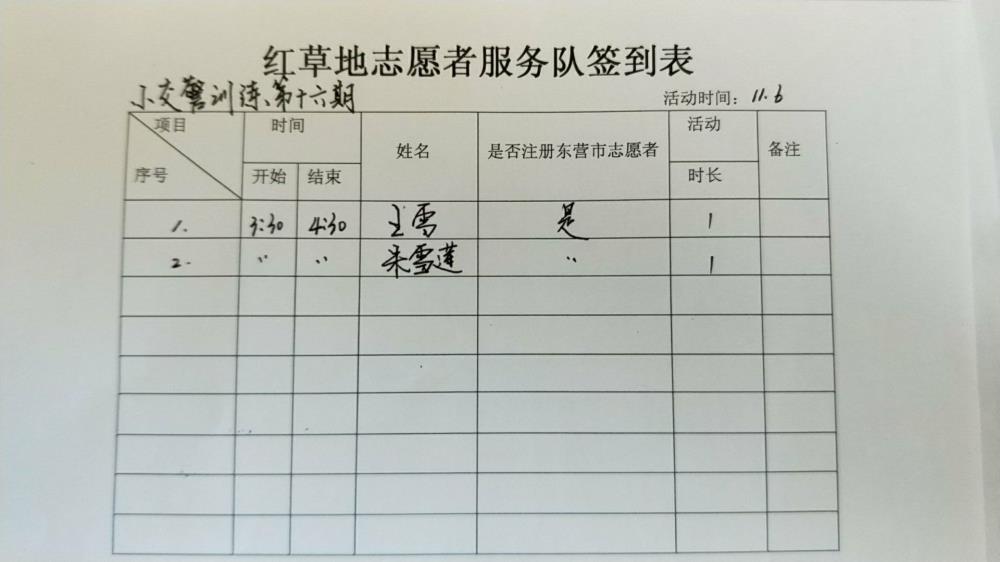 红草地志愿者服务队签到表
小交警训练第十六期 活动时间：11.6
项目 序号 时间 开始 结束 姓名 是否注册东营市志愿者 活动 时长 备注
1. 3:30 4:30 王雪 是 1
2. 〃 〃 朱雪莲 〃 1